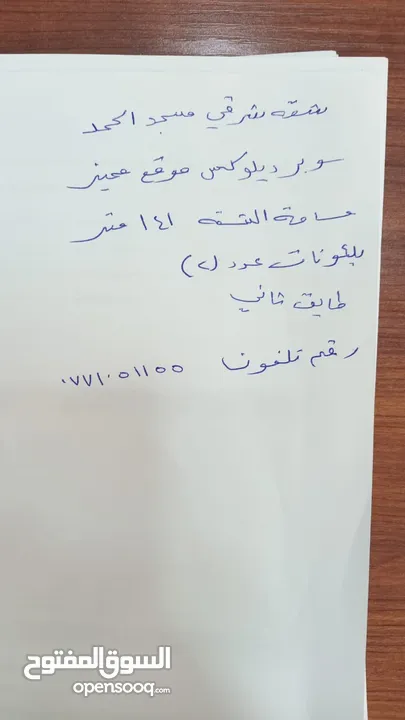 شقه شرقي مسجد الحمد
سوبر ديلوكس موقع مميز
مساحة الشقه ١٤١ متر
بلكونات عدد (٢)
طابق ثاني
رقم تلفون ٠٧٧١٠٥١١٥٥
السوق المفتوح
opensooq.com